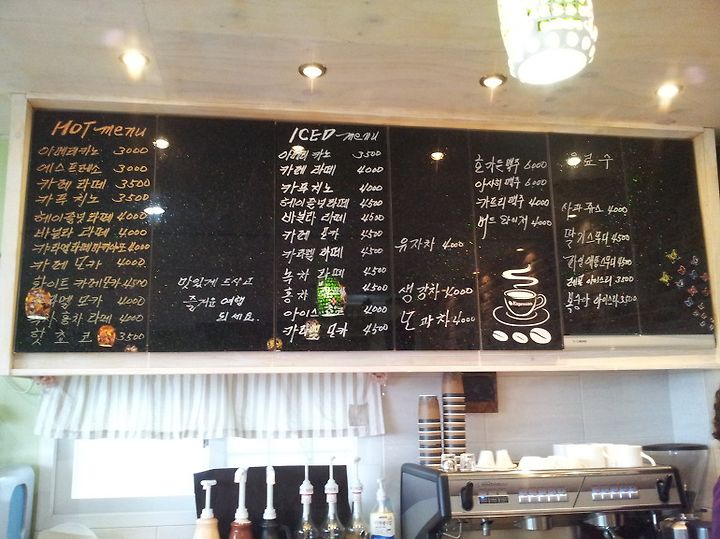 HOT menu
아메리카노 3000
에스프레소 3000
카페 라떼 3500
카푸 치노 3500
헤이즐넛 라떼 4000
바닐라 라떼 4000
카라멜라떼마끼아또 4000
카페 모카 4000
화이트 카페모카 4500
모카 4000
홍차 라떼 4000
핫 초코 3500
맛있게 드시고
즐거운 여행
되세요.
ICED menu
아메리 카노 3500
카페 라떼 4000
카푸치노 4000
헤이즐넛 라떼 4500
바닐라 라떼 4500
카페 모카 4500
카라멜 라떼 4500
녹차 라떼 4500
홍차 라떼 4500
아이스 초코 4000
카라멜 모카 4500
유자차 4000
생강차 4000
모과차 4000
호가든 맥주 6000
아사히 맥주 6000
카프리 맥주 4000
버드 와이저 4000
음료수
사과 쥬스 4000
딸기스무디 4500
스무디 4500
레몬 아이스티 3500
복숭아 아이스티 3500